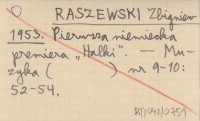 RASZEWSKI Zbigniew
1953. Pierwsza niemiecka
premiera „Halki”. — Mu-
zyka ( ) nr 9-10:
52-54.